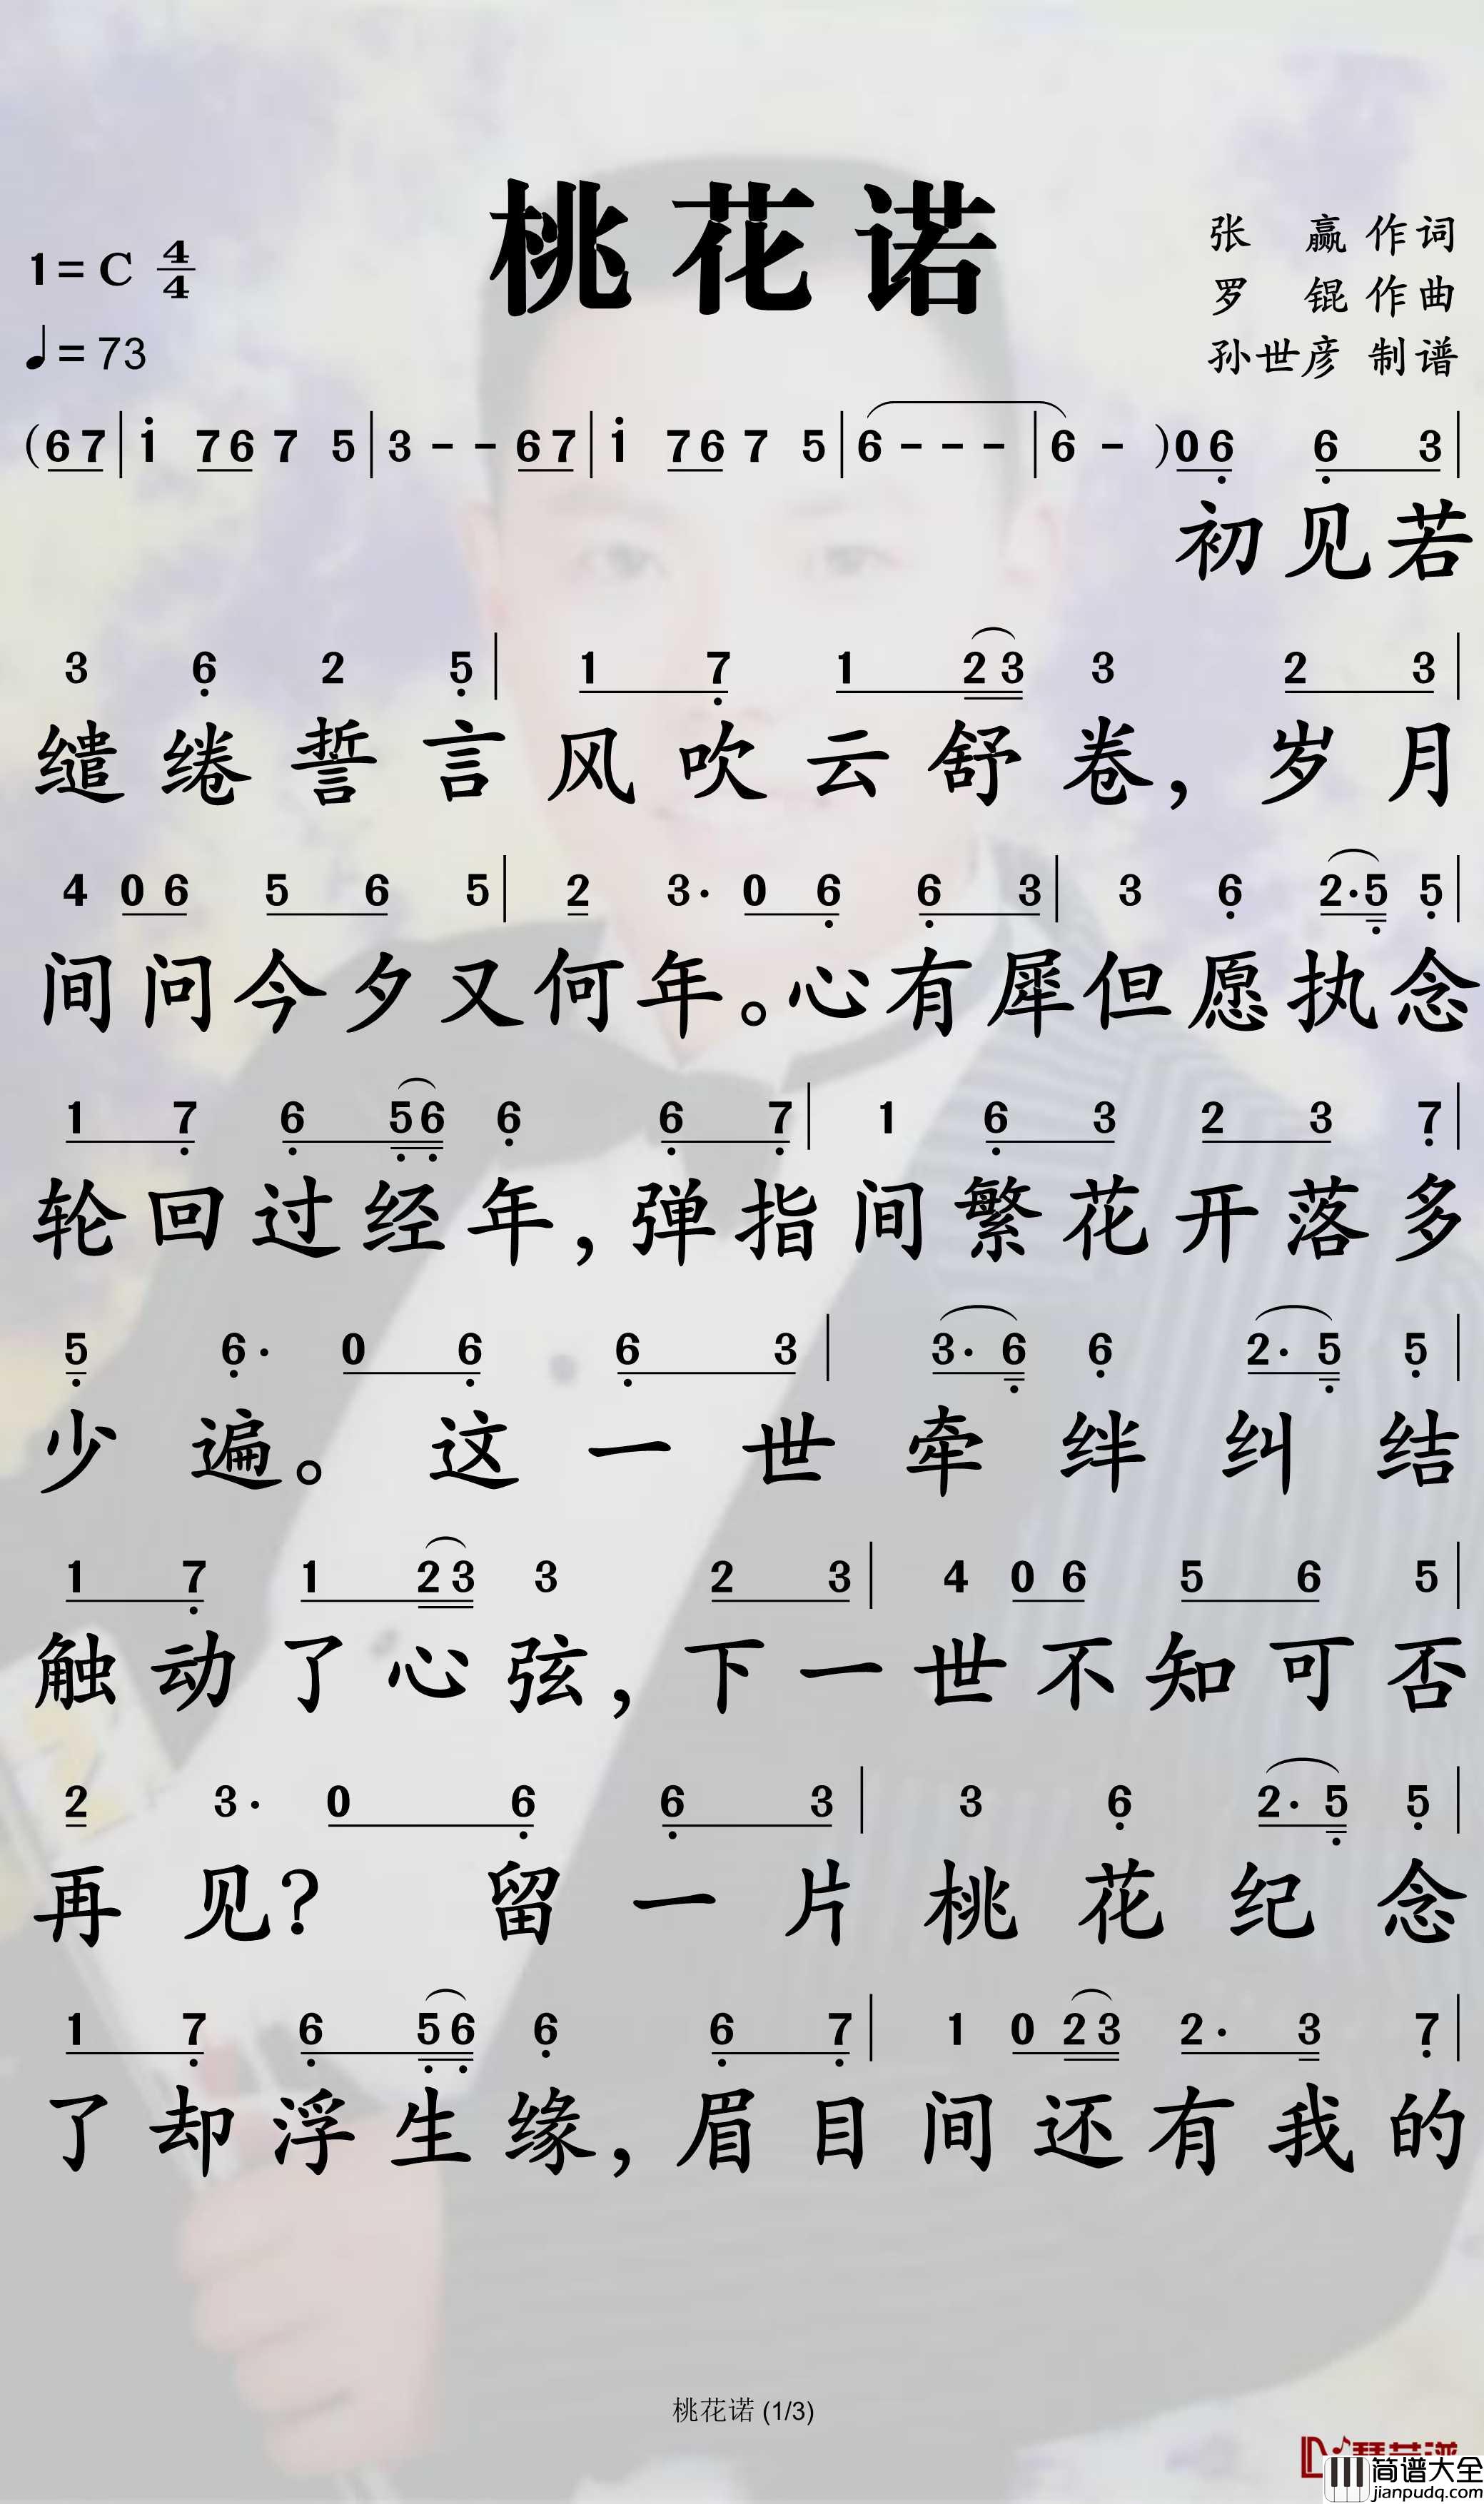 桃花诺
1=C 4/4
♩=73
张 赢 作词
罗 锟 作曲
孙世彦 制谱
(6 7 | i 7 6 7 5 | 3 - - 6 7 | i 7 6 7 5 | 6 - - - | 6 - ) 0 6̣ 6̣ 3 |
初见若
3 6̣ 2 5̣ | 1 7̣ 1 2 3 3 2 3 |
缱绻誓言风吹云舒卷，岁月
4 0 6 5 6 5 | 2 3· 0 6̣ 6̣ 3 | 3 6̣ 2·5̣ 5̣ |
间问今夕又何年。心有犀但愿执念
1 7̣ 6̣ 5̣ 6̣ 6̣ 6̣ 7̣ | 1 6̣ 3 2 3 7̣ |
轮回过经年，弹指间繁花开落多
5̣ 6̣· 0 6̣ 6̣ 3 | 3·6̣ 6̣ 2·5̣ 5̣ |
少遍。这一世牵绊纠结
1 7̣ 1 2 3 3 2 3 | 4 0 6 5 6 5 |
触动了心弦，下一世不知可否
2 3· 0 6̣ 6̣ 3 | 3 6̣ 2·5̣ 5̣ |
再见？留一片桃花纪念
1 7̣ 6̣ 5̣ 6̣ 6̣ 6̣ 7̣ | 1 0 2 3 2· 3 7̣ |
了却浮生缘，眉目间还有我的
桃花诺 (1/3)
简谱大全
jianpudq.com